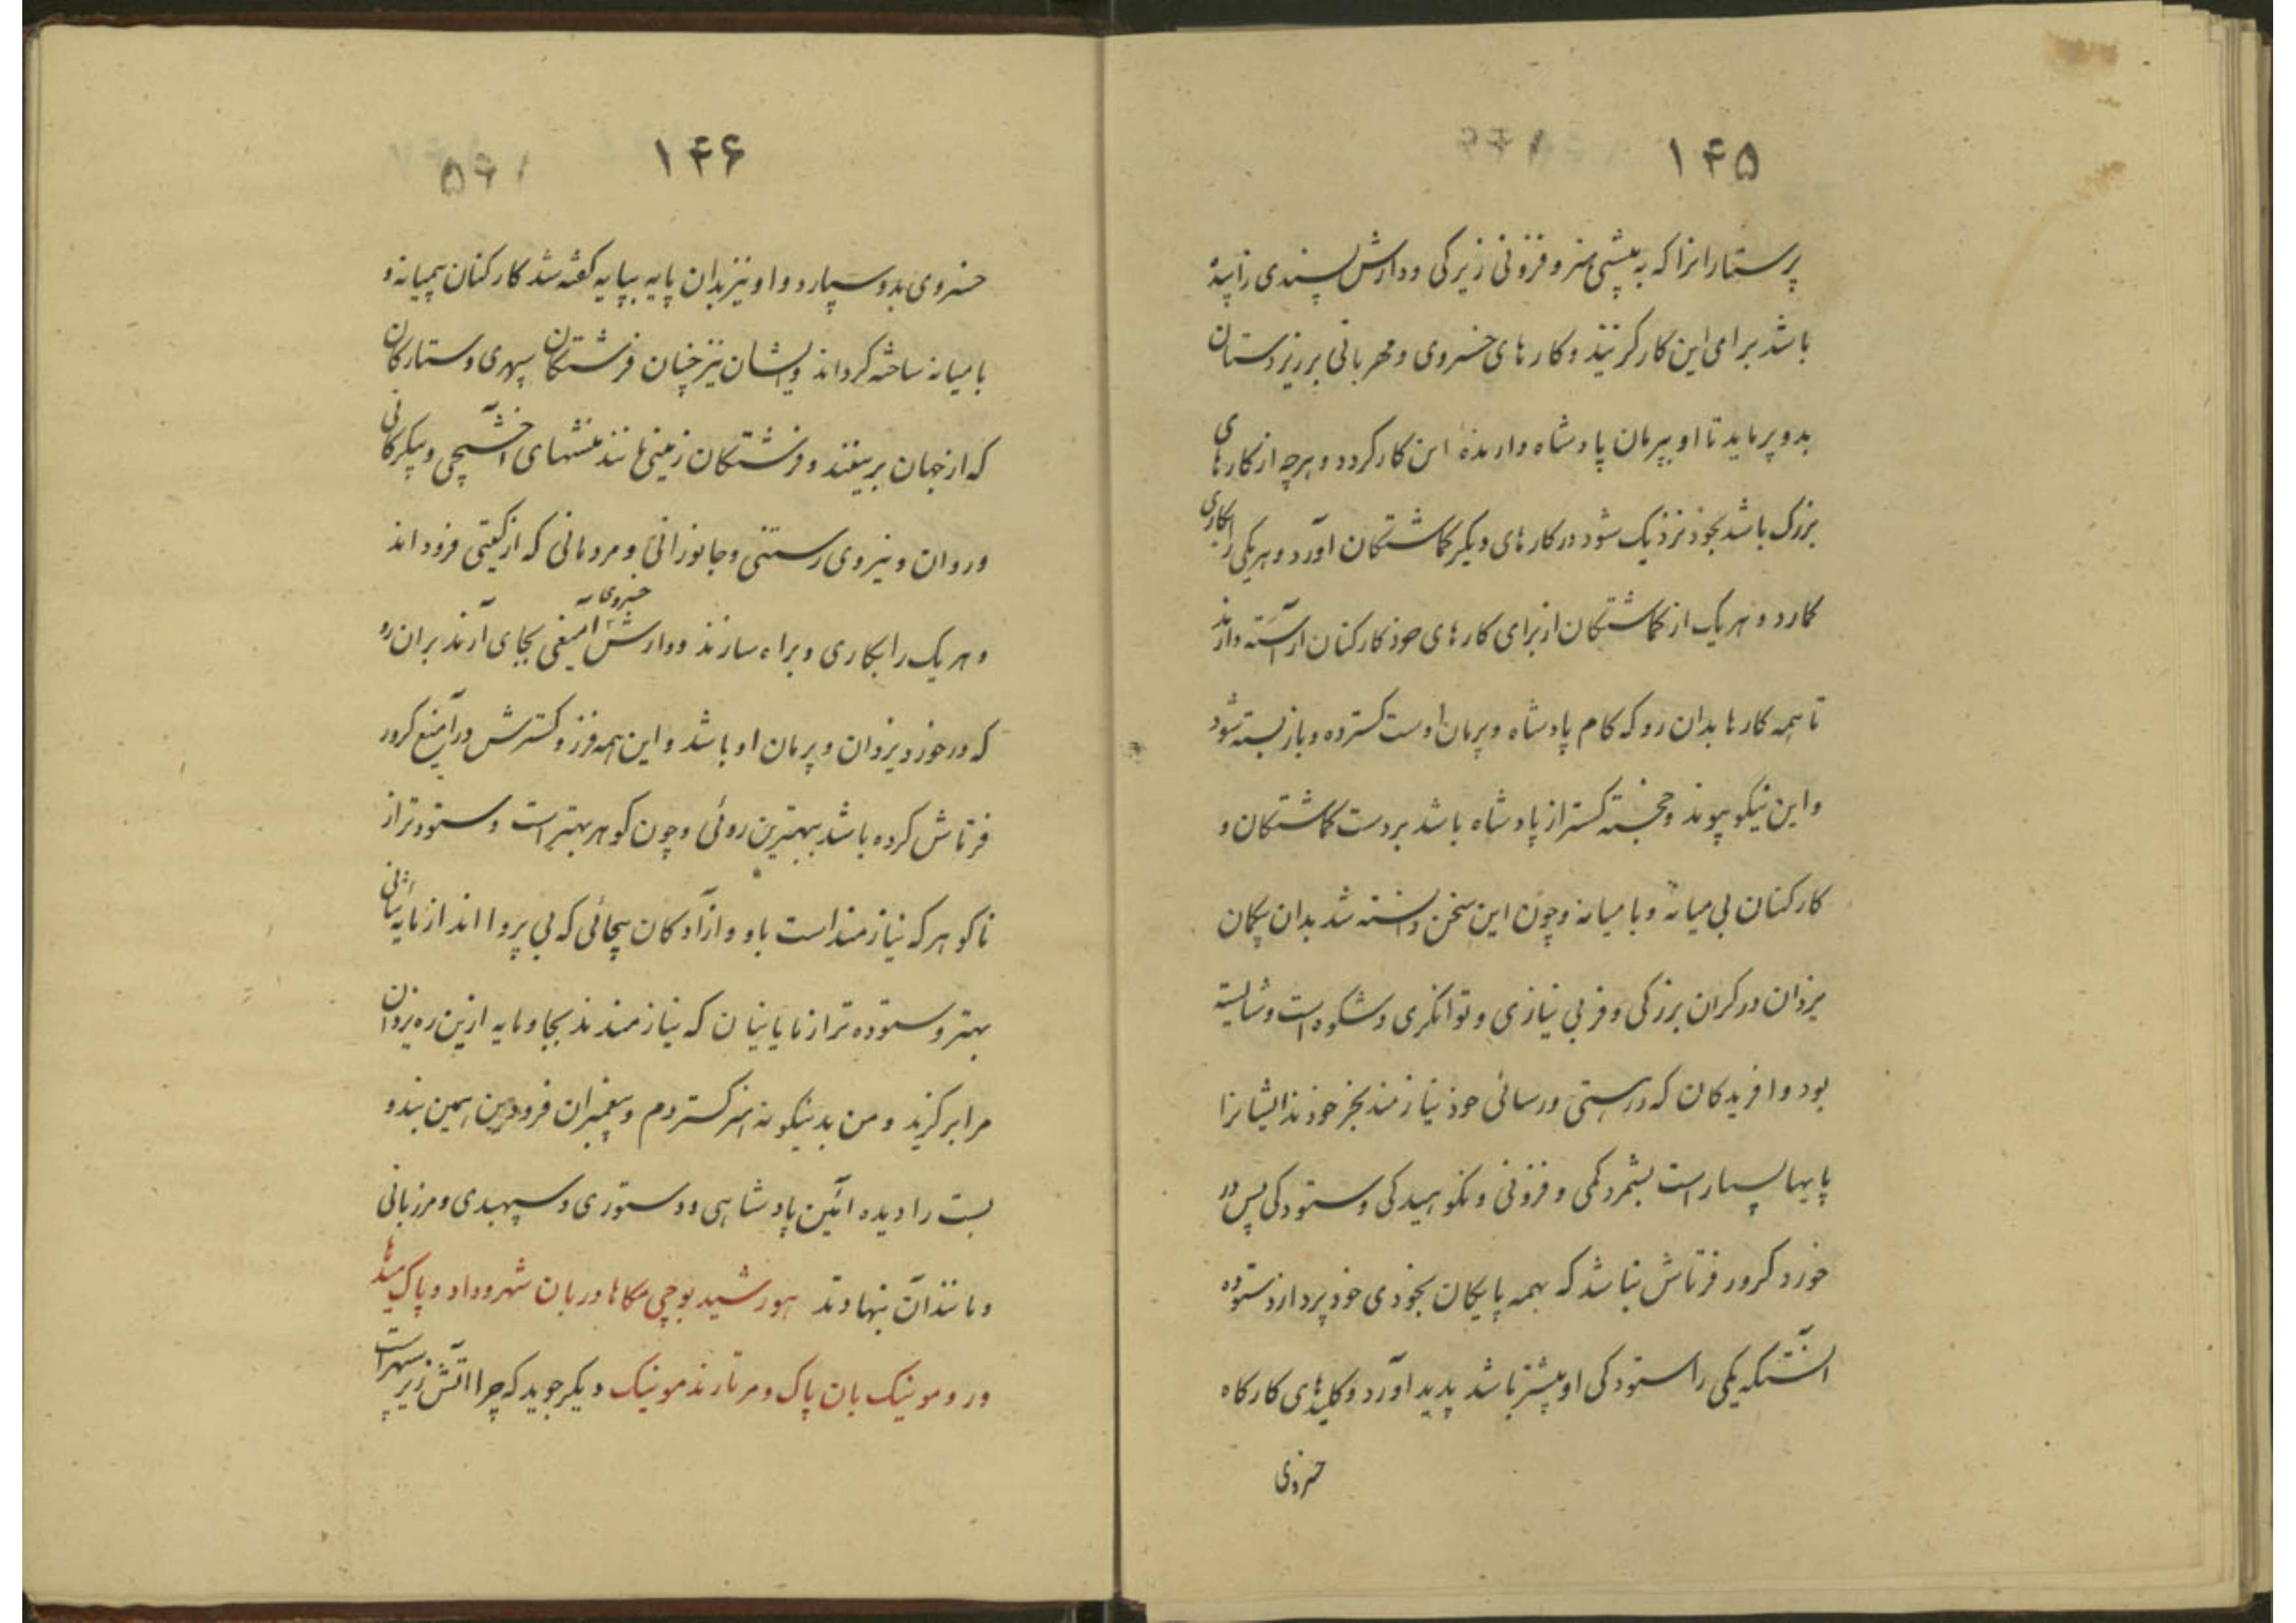 ۱۴۵
پرستارانرا که به بیشی هنر و فزونی زیرکی و دادارش پسندی زاییده
باشد برای این کار گزیند و کارهای خسروی و مهربانی بر زیردستان
بدو پرماید تا او بپرمان پادشاه دارندهٔ این کار گردد و هرچه از کارهای
بزرک باشد بخود نزدیک شود در کارهای دیگر کماشتکان آورد و هر یکی را بکاری
کمارد و هر یک از کماشتکان از برای کارهای خود کارکنان آراسته دارند
تا همه کارها بدان رو که کام پادشاه و پرمان اوست کسترده و بازبسته شود
و این نیکو پیوند و خجسته کستر از پادشاه باشد بردست کماشتکان و
کارکنان بی میانه و با میانه و چون این سخن دانسته شد بدان بیکمان
یزدان در کران بزرکی و فر بی نیازی و توانکری و شکوه است و شایسته
بود و آفریدکان که در هستی و رسائی خود نیازمند بجز خودند ایشانرا
پایها بسیار است بشمرد کمی و فزونی و نکوهیدکی و ستودکی پس در
خورد کرور فرتاش نباشد که بهمه پایکان بخودی خود پردازد ستوده
آنستکه یکی را ستودکی او بیشتر باشد پدید آورد و کلیدهای کارکاه
خسروی
۱۴۶
خسروی بدو سپارد و او نیز بدان پایه بپایه کفته شد کارکنان بیمیانه و
بامیانه ساخته کرداند و ایشان نیز چنان فرشتکان سپهری و ستارکان
که از جهان برینند و فرشتکان زمینی مانند منشهای آخشیجی و پیکرکانی
و روان و نیروی رستنی و جانورانی و مردمانی که از کیتی فرودند
و هر یک را بکاری و براه سازند و دارش آمیغی خسروی بجای آرند بران ره
که در خورد یزدان و پرمان او باشد و این همه فرز و کسترش در آمیغ کرور
فرتاش کرده باشد ببهترین روئی و چون کوهر بهتر است و ستوده تر از
ناکوهر که نیازمند است باو و از آزادکان بیجائی که بی پروا اند از مایه شانی
بهتر و ستوده تر از مایانیان که نیازمندند بجا و مایه ازین ره یزدان
مرا برکزید و من بدینکونه هنر کستردم و پیغمبران فرودین همین بند و
بست را دیده آئین پادشاهی و دستوری و سپهبدی و مرزبانی
و مانند آن بنهادند هورشید بوجی مکاها دربان شهر و داد و پاک میدها
ور و مونیک بان پاک و مرتارند مونیک دیگر جوید که چرا آتش زیر سپهر است